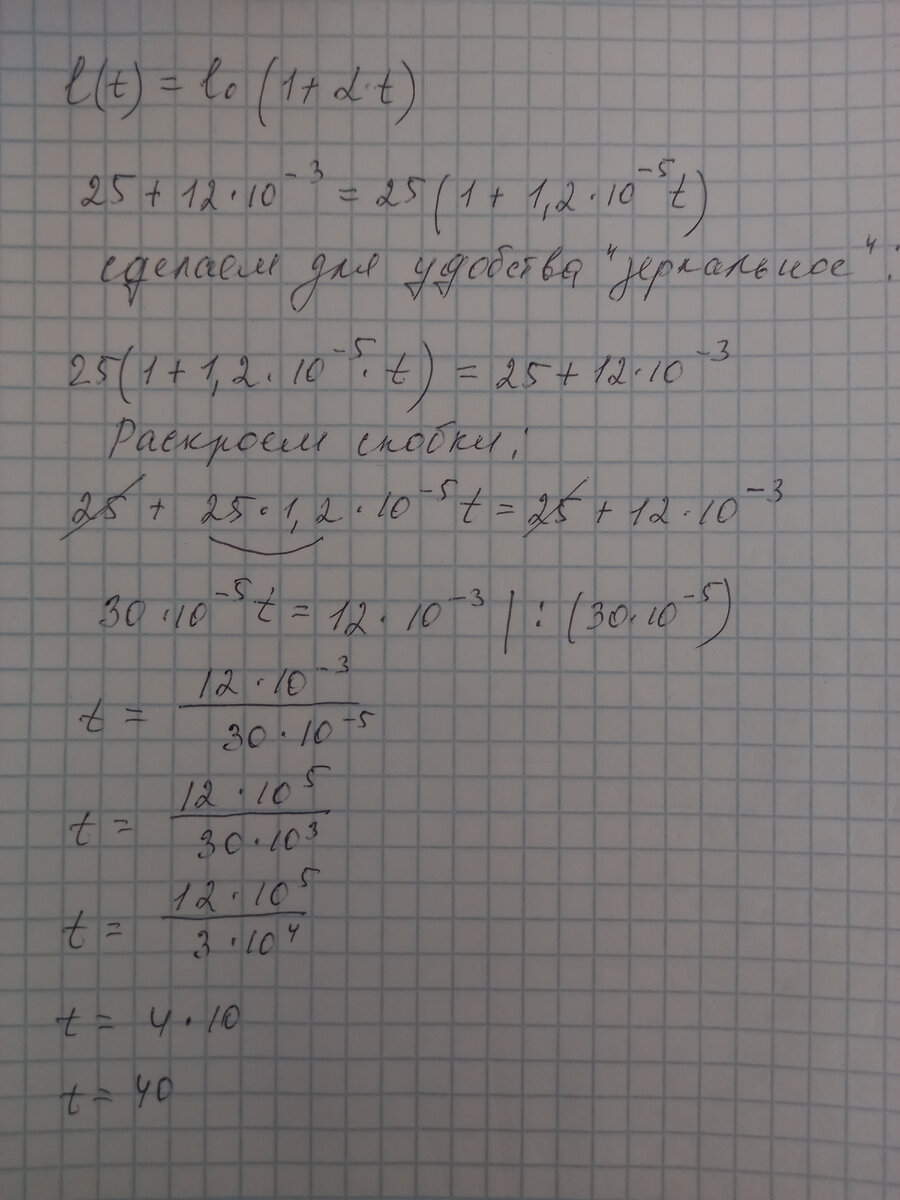 l(t) = l₀ (1 + α·t)
25 + 12·10⁻³ = 25(1 + 1,2·10⁻⁵t)
сделаем для удобства "зеркальное":
25(1 + 1,2·10⁻⁵·t) = 25 + 12·10⁻³
Раскроем скобки:
25 + 25·1,2·10⁻⁵t = 25 + 12·10⁻³
30·10⁻⁵t = 12·10⁻³ | : (30·10⁻⁵)
t = 12·10⁻³ / 30·10⁻⁵
t = 12·10⁵ / 30·10³
t = 12·10⁵ / 3·10⁴
t = 4·10
t = 40